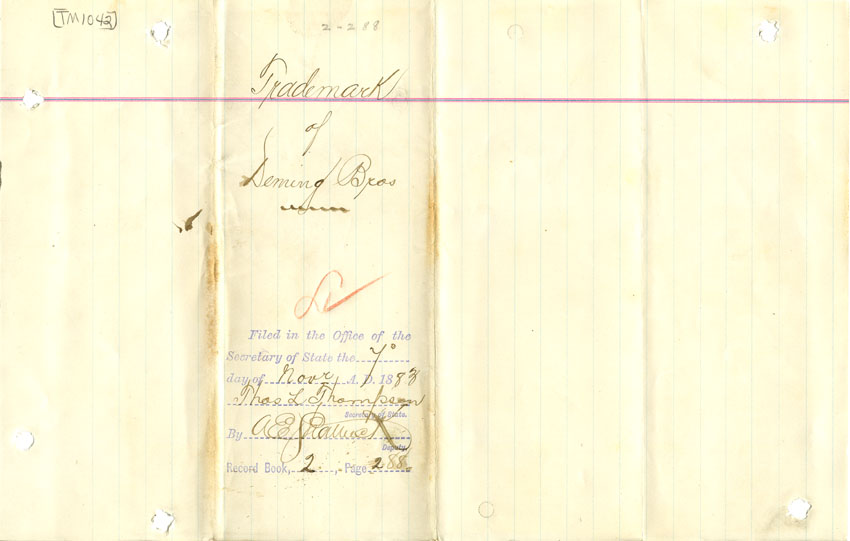 [TM1042]
2-288
Trademark
of
Deming Bros
Filed in the Office of the
Secretary of State the 7°
day of Novr A. D. 1883
Thos L Thompson
Secretary of State.
By A E
Deputy
Record Book, 2, Page 288